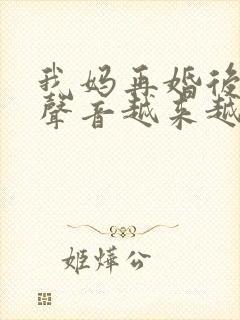 我妈再婚后
聲音越来越
姬燁公